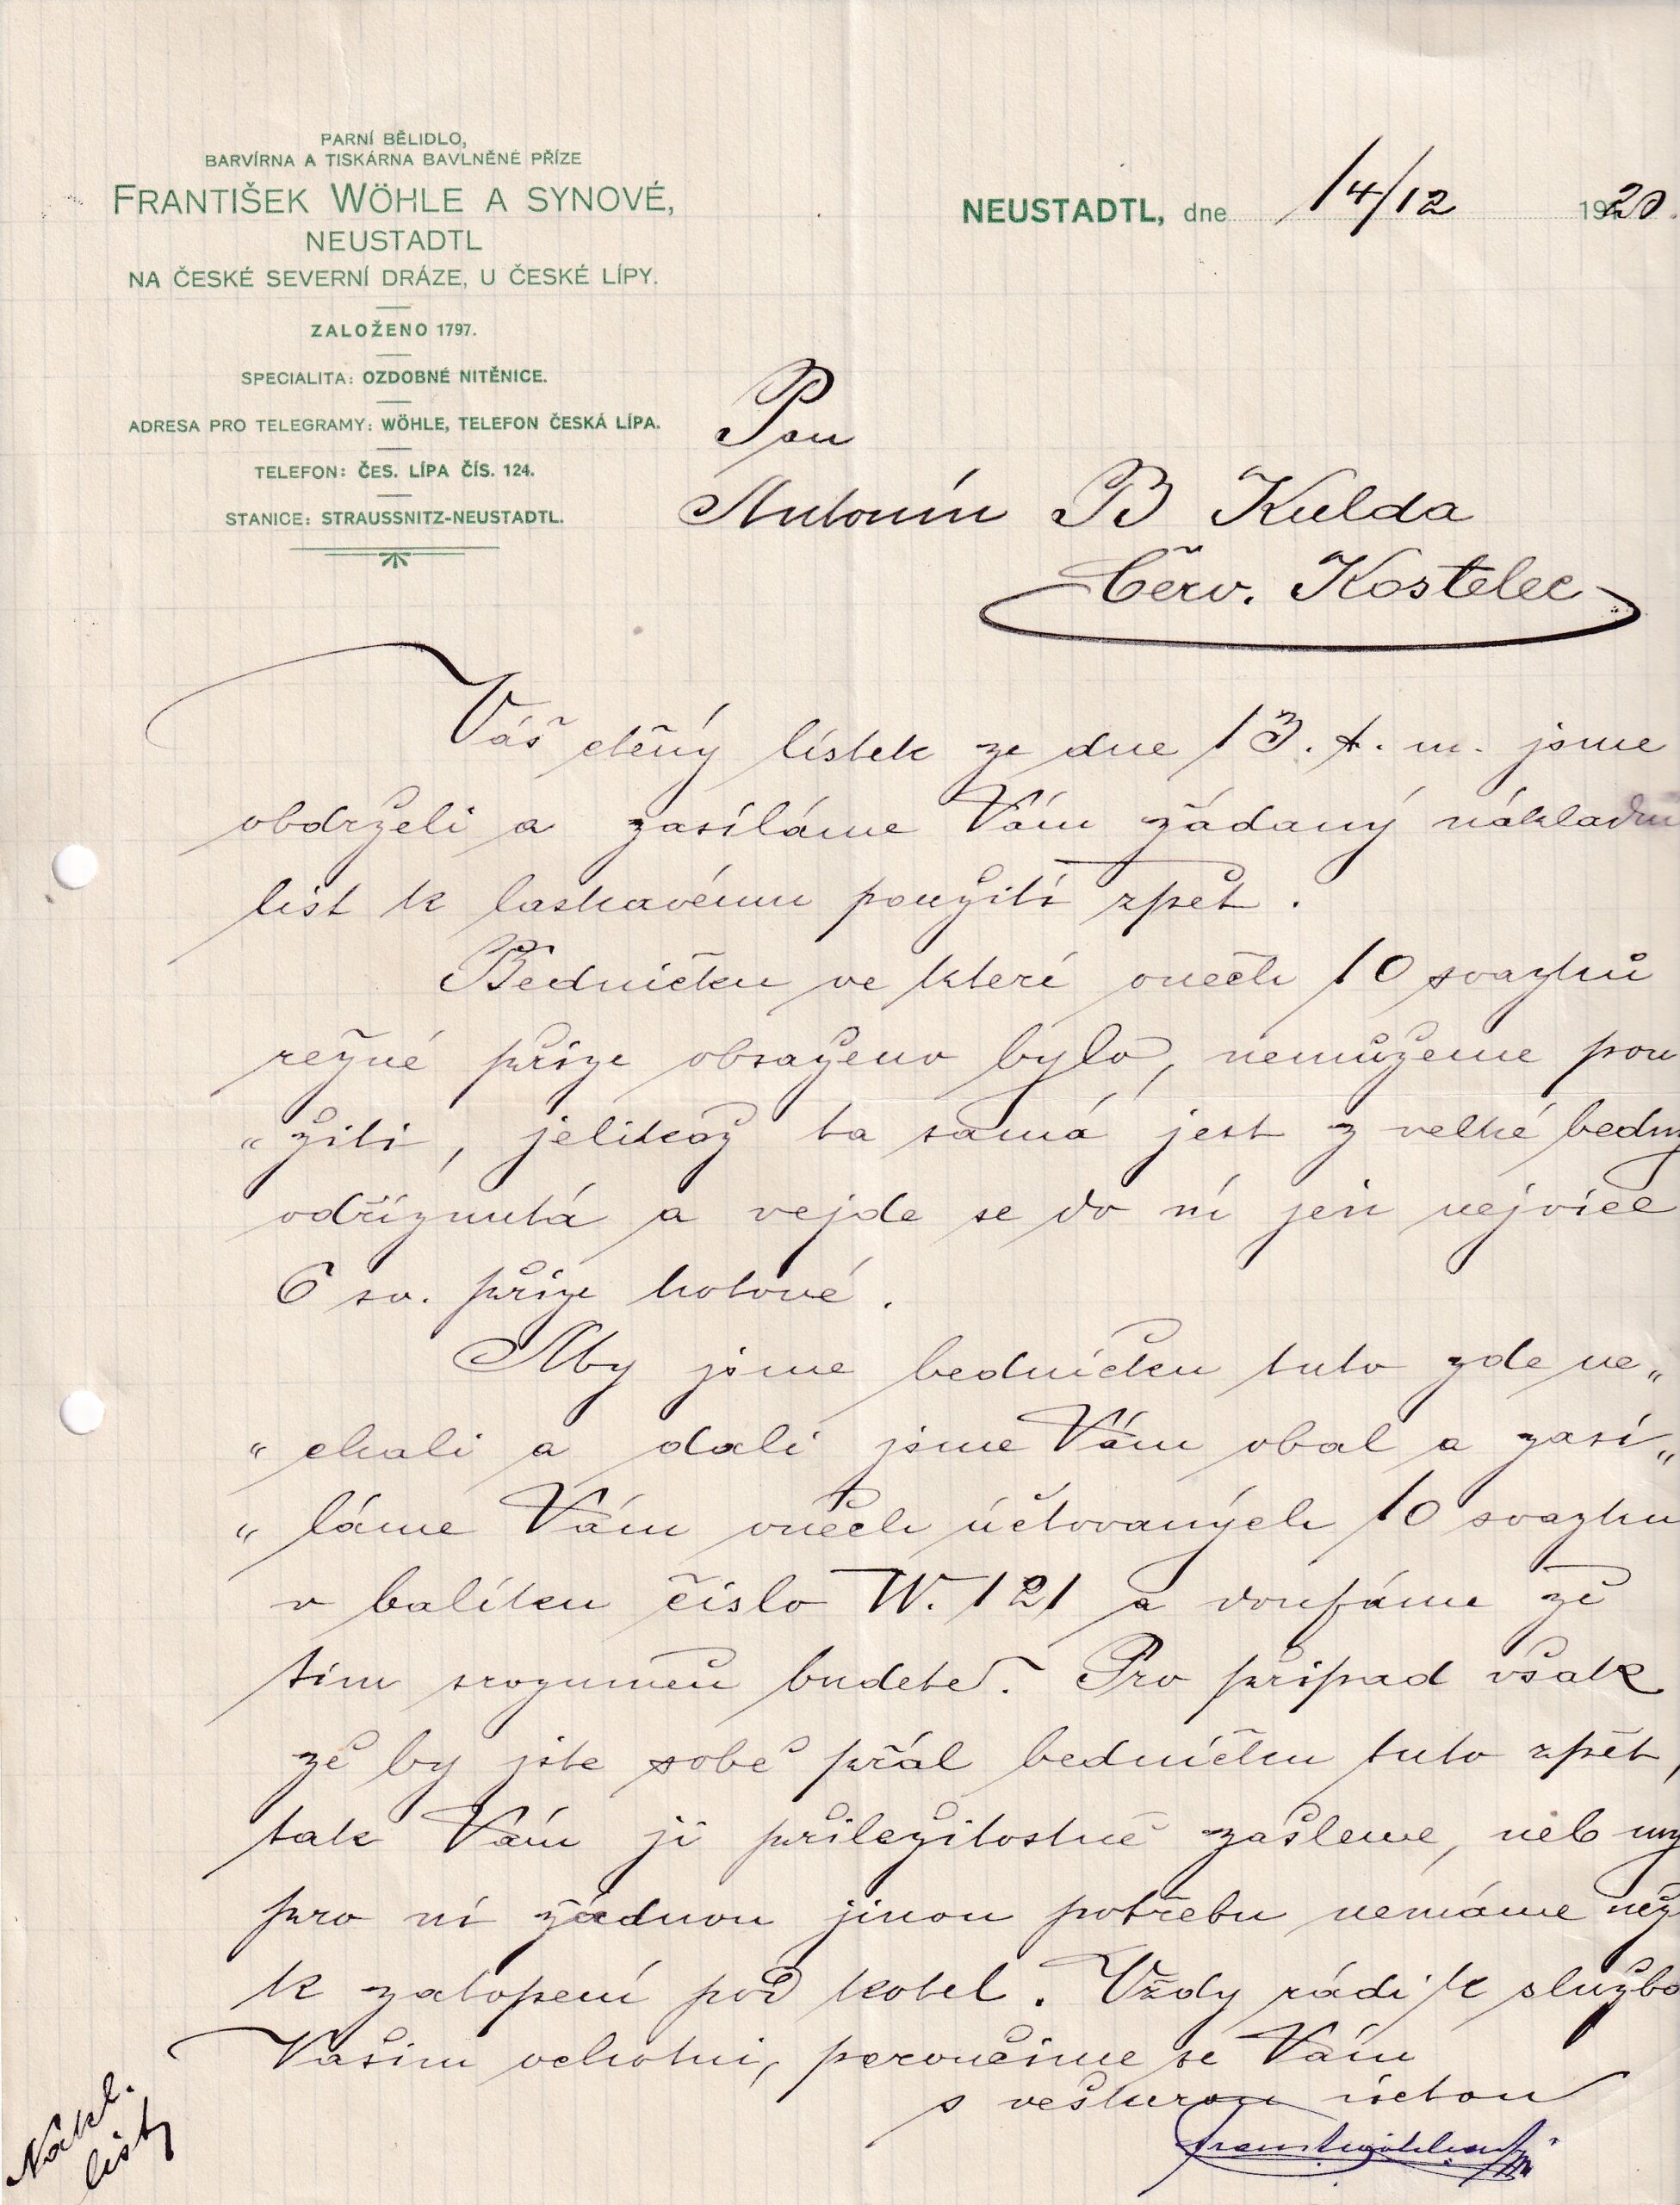 PARNÍ BĚLIDLO,
BARVÍRNA A TISKÁRNA BAVLNĚNÉ PŘÍZE
FRANTIŠEK WÖHLE A SYNOVÉ,
NEUSTADTL
NA ČESKÉ SEVERNÍ DRÁZE, U ČESKÉ LÍPY.
ZALOŽENO 1797.
SPECIALITA: OZDOBNÉ NITĚNICE.
ADRESA PRO TELEGRAMY: WÖHLE, TELEFON ČESKÁ LÍPA.
TELEFON: ČES. LÍPA ČÍS. 124.
STANICE: STRAUSSNITZ-NEUSTADTL.
NEUSTADTL, dne 14/12 1920.
Pan
Antonín B Kulda
Červ. Kostelec
Váš ctěný lístek ze dne 13. t. m. jsme
obdrželi a zasíláme Vám žádaný nákladní
list k laskavému použití zpět.
Bedničku ve které oněch 10 svazků
režné příze obsaženo bylo, nemůžeme pou
„žiti, jelikož ta samá jest z velké bedny
odříznutá a vejde se do ní jen nejvíce
6 sv. příze hotové.
Aby jsme bedničku tuto zde ne„
„chali a dali jsme Vám obal a zasí„
„láme Vám oněch účtovaných 10 svazku
v balíku číslo W. 121 a doufáme že
tím srozuměn budete. Pro případ však
že by jste sobě přál bedničku tuto zpět,
tak Vám ji příležitostně zašleme, neb my
pro ní žádnou jinou potřebu nemáme než
k zatopení pod kotel. Vždy rádi k službo
Vašim ochotni, poroučíme se Vám
s veškerou úctou
Nákl.
listy